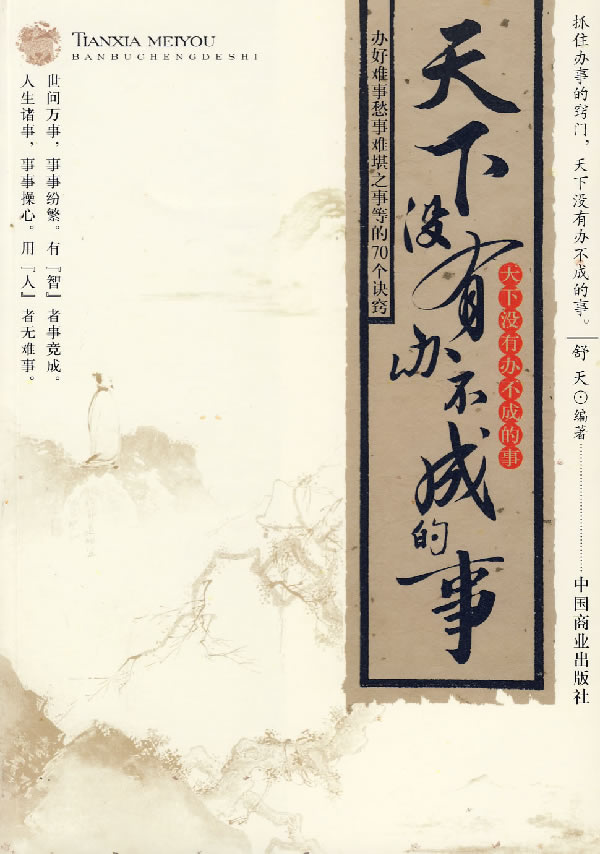 TIANXIA MEIYOU
BANBUCHENGDESHI
抓住办事的窍门，天下没有办不成的事。
舒天⊙编著
中国商业出版社
天下没有办不成的事
天下没有办不成的事
办好难事愁事难堪之事等的70个诀窍
世间万事，事事纷繁。有『智』者事竟成。
人生诸事，事事操心。用『人』者无难事。